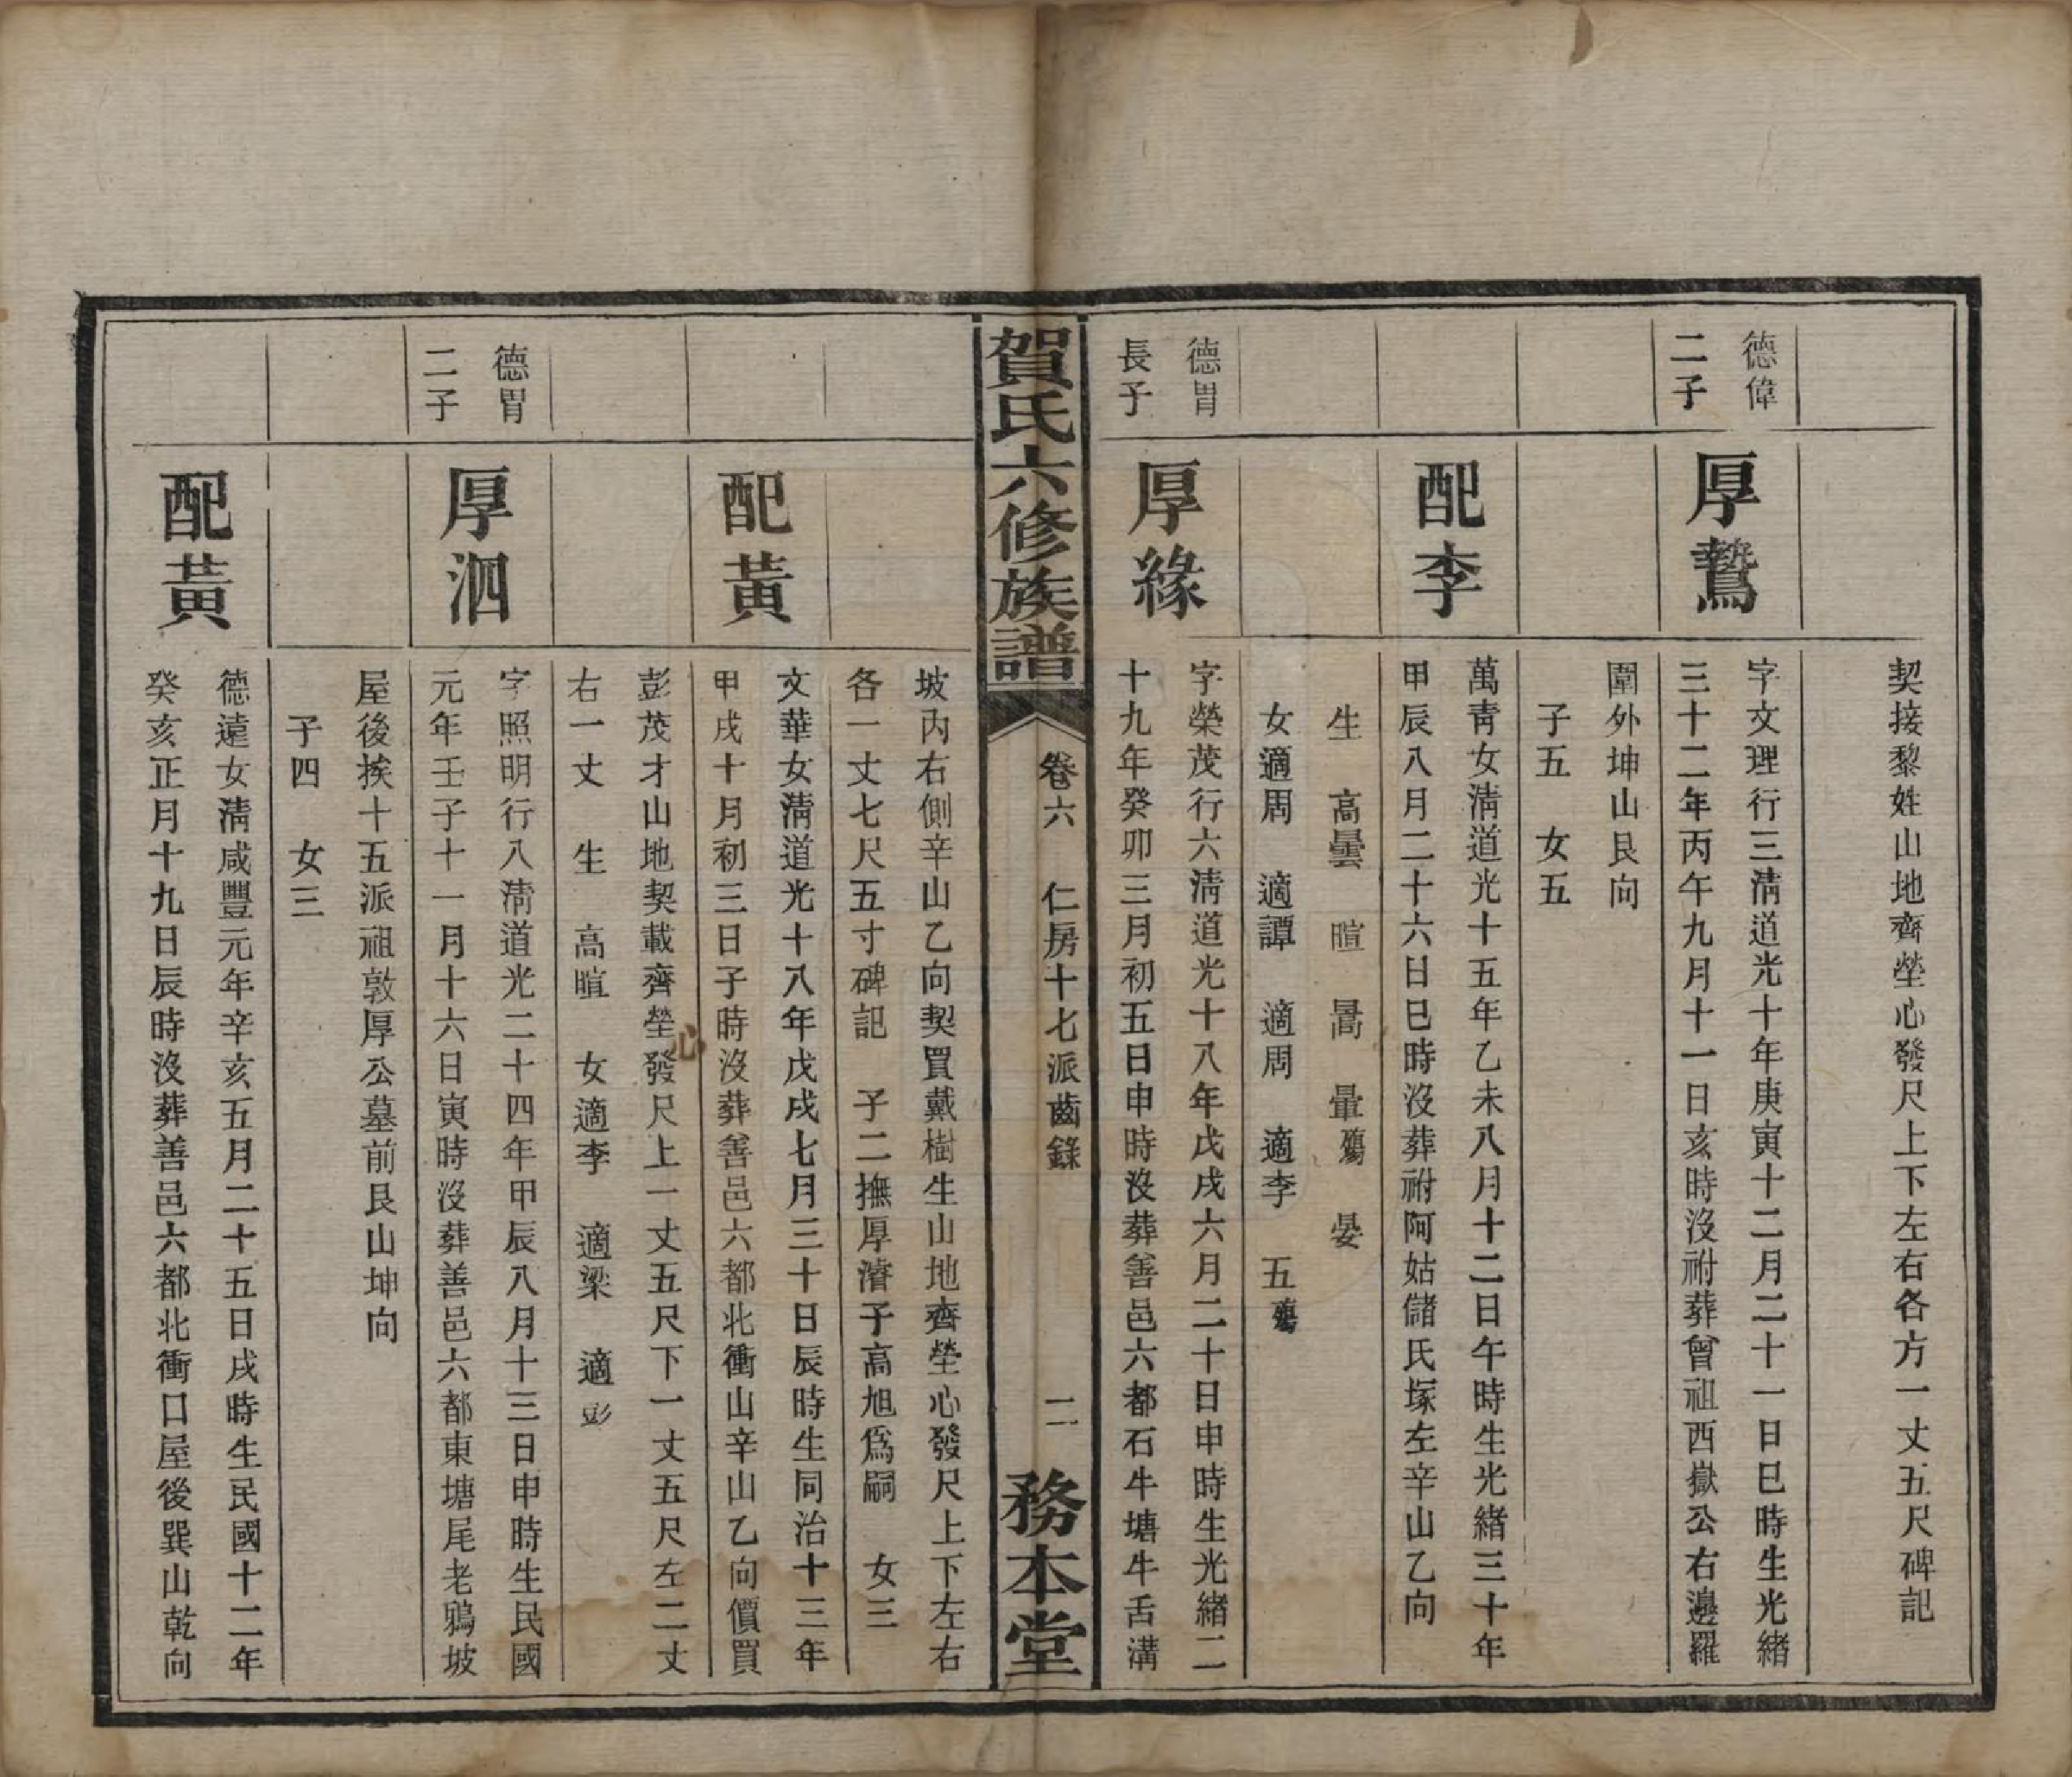 契接黎姓山地齊塋心發尺上下左右各方一丈五尺碑記
德偉
二子
厚鷙
字文理行三清道光十年庚寅十二月二十一日巳時生光緒
三十二年丙午九月十一日亥時沒祔葬曾祖西嶽公右邊羅
圍外坤山艮向
子五　女五
配李
萬青女清道光十五年乙未八月十二日午時生光緒三十年
甲辰八月二十六日巳時沒葬祔阿姑儲氏塚左辛山乙向
生　高曇　暄　暠　暈殤　晏
女適周　適譚　適周　適李　五殤
德胃
長子
厚緣
字榮茂行六清道光十八年戊戌六月二十日申時生光緒二
十九年癸卯三月初五日申時沒葬善邑六都石牛塘牛舌溝
賀氏六修族譜
卷六　仁房十七派齒錄
二
務本堂
坡內右側辛山乙向契買戴樹生山地齊塋心發尺上下左右
各一丈七尺五寸碑記　子二撫厚濬子高旭爲嗣　女三
配黃
文華女清道光十八年戊戌七月三十日辰時生同治十三年
甲戌十月初三日子時沒葬善邑六都北衝山辛山乙向價買
彭茂才山地契載齊塋心發尺上一丈五尺下一丈五尺左二丈
右一丈　生　高暄　女適李　適梁　適彭
德胃
二子
厚泗
字照明行八清道光二十四年甲辰八月十三日申時生民國
元年壬子十一月十六日寅時沒葬善邑六都東塘尾老鴉坡
屋後挨十五派祖敦厚公墓前艮山坤向
子四　女三
配黃
德遠女清咸豐元年辛亥五月二十五日戌時生民國十二年
癸亥正月十九日辰時沒葬善邑六都北衝口屋後巽山乾向